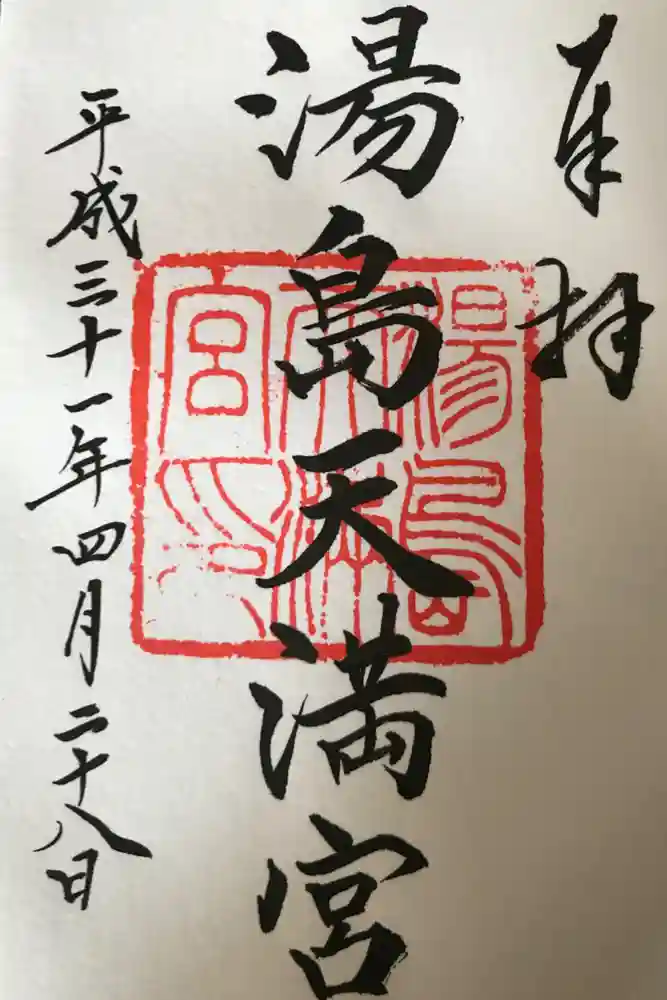 奉拝
湯島天満宮
平成三十一年四月二十八日
湯島天満宮印